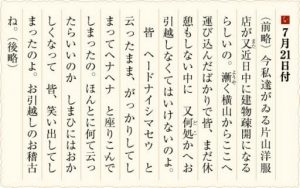 7月21日付
(前略)今私達がゐる片山洋服
店が又近日中に建物疎開になる
らしいの。漸く横山からここへ
運び込んだばかりで皆、まだ休
憩もしない中に 又何処かへお
引越しなくてはいけないのよ。
皆 ヘードナイシマセウ と
云ったまま、がっかりしてし
まってヘナヘナと座りこんで
しまったの。ほんとに何て云っ
たらいいのか しまひにはおか
しくなって 皆、笑い出してし
まったのよ。お引越しのお稽古
ね。(後略)